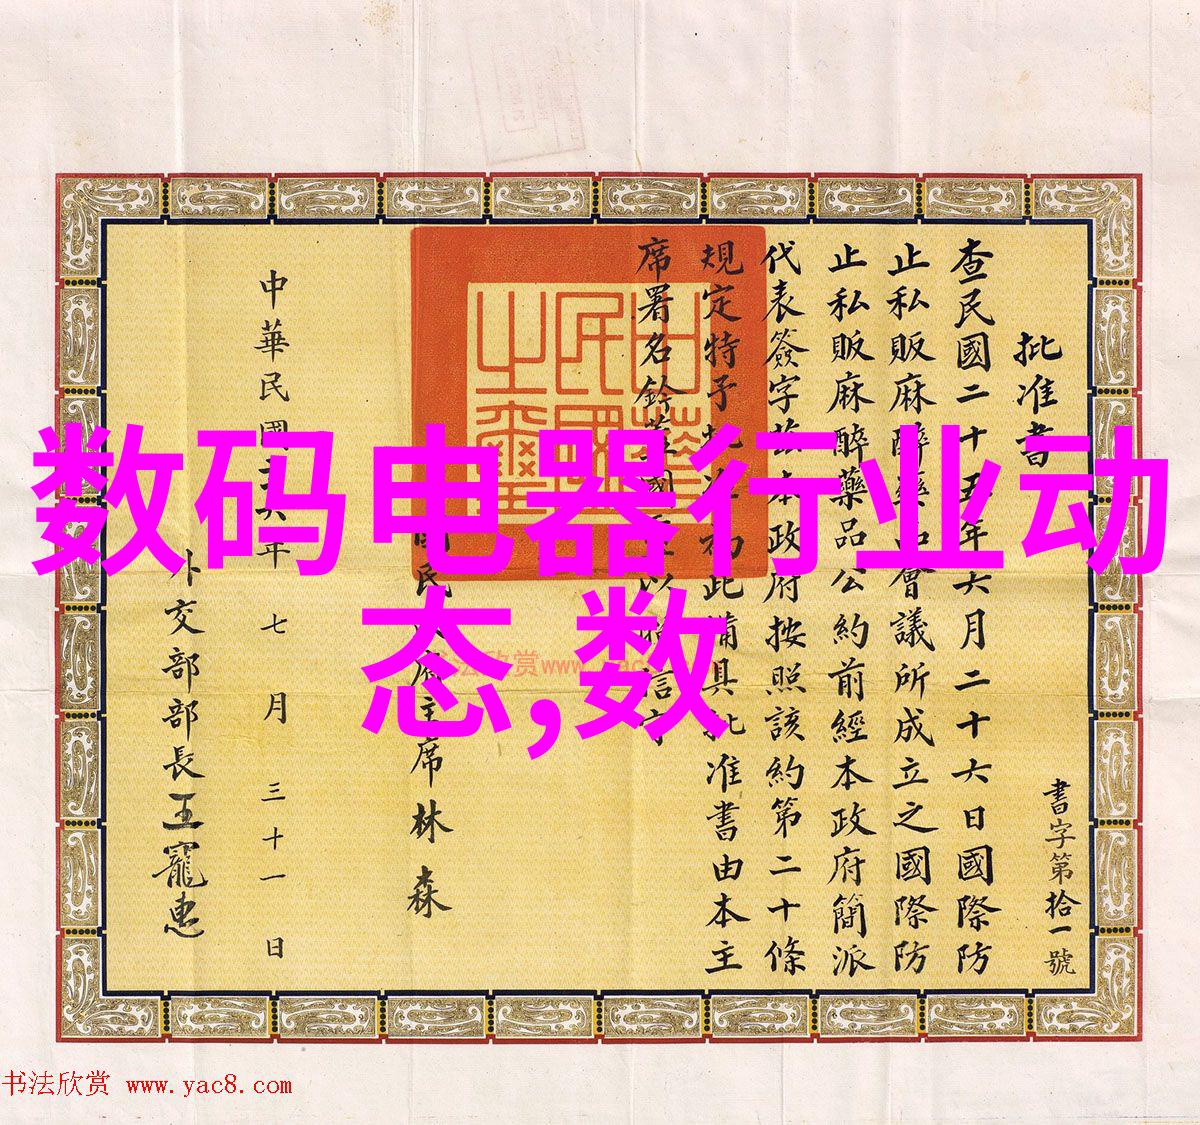 批准書
書字第拾一號
查民國二十五年六月二十六日國際防
止私販麻醉藥品會議所成立之國際防
止私販麻醉藥品公約前經本政府簡派
代表簽字茲本政府按照該約第二十條
規定特予批准為此備具批准書由本主
席署名鈐蓋國璽以昭信守
中華民國之璽
國民政府主席林森
中華民國二十六年七月三十一日
外交部部長王寵惠
数码电器行业动
态,数
书法欣赏 www.yac8.com